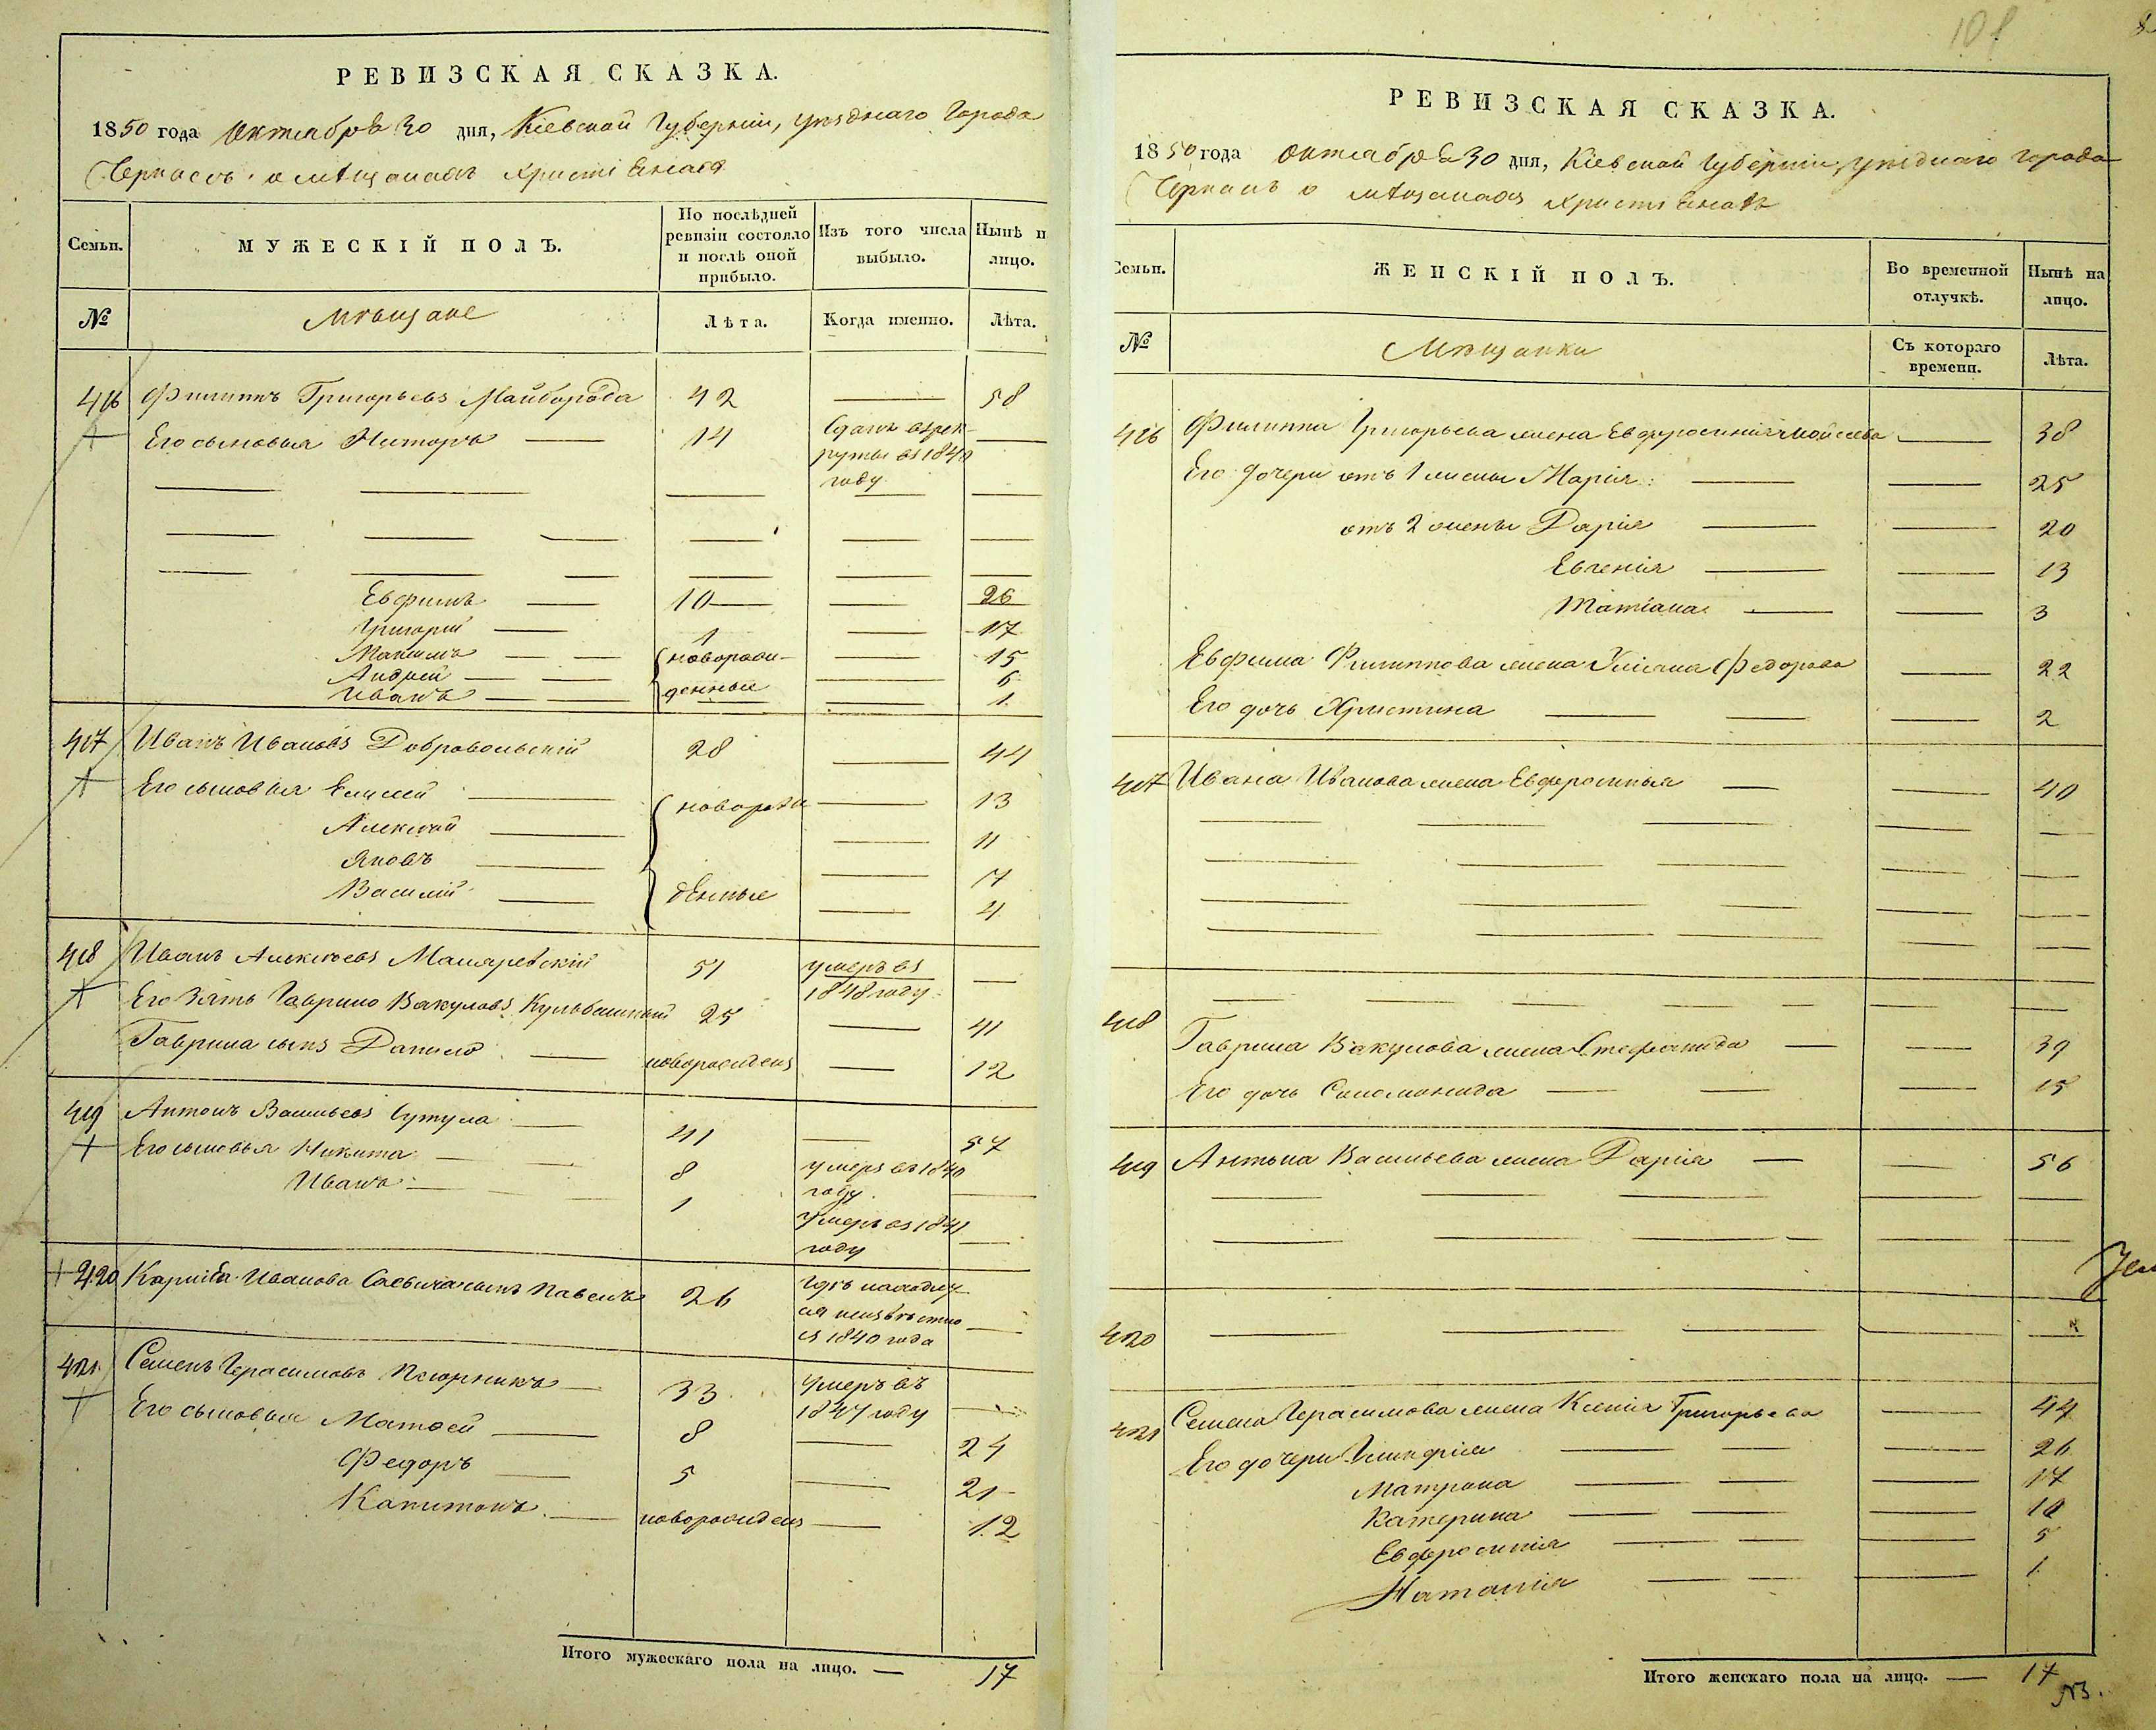 РЕВИЗСКАЯ СКАЗКА.
1850 года Октября 30 дня, Кіевской Губерніи, уѣзднаго Города
Черкасъ о мѣщанахъ христіанахъ
Семьи. МУЖЕСКІЙ ПОЛЪ. По послѣдней ревизіи состояло и послѣ оной прибыло. Изъ того числа выбыло. Нынѣ н лицо.
№ Мѣщане Лѣта. Когда именно. Лѣта.
416 Филиппъ Григорьевъ Майборода 42 — 58
Его сыновья Никторъ — 14 Сданъ в рек-
руты въ 1840
году
Евфимъ — 10 — 26
Григорій — 1 — 17
Максимъ — новорож- — 15
Андрей — — 6
Иванъ — денные — 1
417 Иванъ Ивановъ Добровольскій 28 — 44
Его сыновья Елисей — новорож — 13
Алексѣй — — 11
Яковъ — — 7
Василій — денные — 4
418 Иванъ Алексѣевъ 51 умеръ въ —
1848 году
Его Зять Гаврило Вакуловъ 25 — 41
Гаврила сынъ Данило — новорожденъ — 12
419 Антонъ Васильевъ Сутула — 41 — 57
Его сыновья Никита — 8 умеръ въ 1840
году —
Иванъ — 1 умеръ въ 1841
году —
420 Иванова сынъ Павелъ 26 гдѣ находит
ся неизвѣстно —
съ 1840 года
421 Семенъ Герасимовъ Псюрникъ — 33 умеръ въ
1847 году —
Его сыновья Матвей — 8 — 24
Федоръ — 5 — 21
Капитонъ — новорожденъ — 12
Итого мужескаго пола на лицо. — 17
108
РЕВИЗСКАЯ СКАЗКА.
1850 года Октября 30 дня, Кіевской Губерніи, уѣзднаго города
Черкасъ о мѣщанахъ христіанахъ
Семьи. ЖЕНСКІЙ ПОЛЪ. Во временной отлучкѣ. Нынѣ на лицо.
№ Мѣщанки Съ котораго времени. Лѣта.
416 Филиппа Григорьева жена Евфросинія Мойсеева — 38
Его дочери отъ 1 жены Марія — — 25
отъ 2 жены Дарія — — 20
Евгенія — — 13
Татіана — — 3
Евфима Филиппова жена Уліана Федорова — 22
Его дочь Христина — — 2
417 Ивана Иванова жена Евфросинья — — 40
418 Гаврила Вакулова жена Стефанида — — 39
Его дочь Соломонида — — 15
419 Антона Васильева жена Дарія — — 56
420 — — — — —
421 Семена Герасимова жена Ксенія Григорьева — 44
Его дочери Гликерія — — 26
Матрона — — 17
Катерина — — 10
Евфросинія — — 5
Наталія — — 1
Итого женскаго пола на лицо. — 17